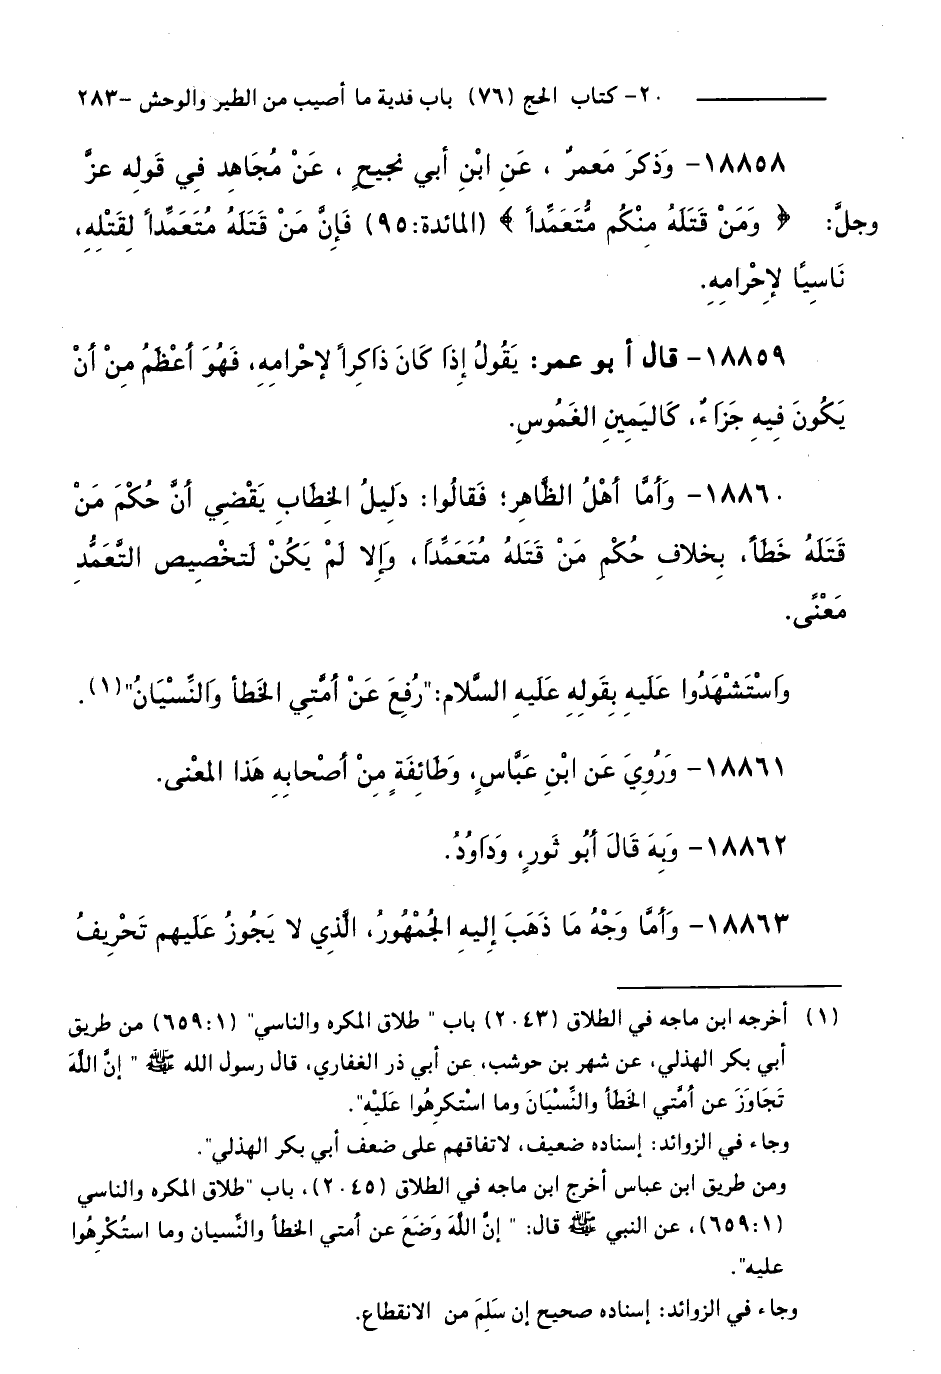 ٢٠- كتاب الحج (٧٦) باب فدية ما أصيب من الطير والوحش -٢٨٣
١٨٨٥٨- وَذكرَ مَعمرٌ ، عَنِ ابْنِ أبي نجيحٍ ، عَنْ مُجَاهد فِي قَوله عزَّ
وجلَّ: ﴿ وَمَنْ قَتَلَهُ مِنْكُم مُّتَعَمِّداً ﴾ (المائدة:٩٥) فَإِنَّ مَنْ قَتَلَهُ مُتَعَمِّداً لِقَتْلِهِ،
نَاسِيًا لإِحْرامِهِ.
١٨٨٥٩- قال أبو عمر: يَقُولُ إِذَا كَانَ ذَاكِراً لإِحْرامِهِ، فَهُوَ أَعْظَمُ مِنْ أَنْ
يَكُونَ فِيهِ جَزَاءٌ، كَاليَمِينِ الغَمُوسِ.
١٨٨٦٠- وَأَمَّا أهْلُ الظَّاهِرِ؛ فَقالُوا: دَلِيلُ الخِطَابِ يَقْضِي أَنَّ حُكْمَ مَنْ
قَتَلَهُ خَطَأً، بِخلافِ حُكْمِ مَنْ قَتَلهُ مُتَعَمِّدًا، وَإِلا لَمْ يَكُنْ لَتخْصِيصِ التَّعَمُّدِ
مَعْنًى.
وَاسْتَشْهَدُوا عَلَيهِ بِقَولِهِ عَلَيهِ السَّلام:"رُفِعَ عَنْ أمَّتِي الخَطأ وَالنِّسْيَانُ"(١).
١٨٨٦١- وَرُوِيَ عَن ابْنِ عَبَّاسٍ، وَطَائِفَةٍ مِنْ أصْحابِهِ هَذا المَعْنى.
١٨٨٦٢- وَبِهَ قَالَ أَبُو ثَورٍ، وَدَاوُدُ.
١٨٨٦٣- وَأَمَّا وَجْهُ مَا ذَهَبَ إِليهِ الجُمْهُورُ، الَّذِي لا يَجُوزُ عَلَيهِم تَحْرِيفُ
(١) أخرجه ابن ماجه في الطلاق (٢٠٤٣) باب " طلاق المكره والناسي" (٦٥٩:١) من طريق
أبي بكر الهذلي، عن شهر بن حوشب، عن أبي ذر الغفاري، قال رسول الله ﷺ " إنَّ اللَّهَ
تَجَاوَزَ عن أمَّتي الخَطَأ والنِّسْيَانَ وما اسْتكرِهُوا عَلَيْهِ".
وجاء في الزوائد: إسناده ضعيف، لاتفاقهم على ضعف أبي بكر الهذلي".
ومن طريق ابن عباس أخرج ابن ماجه في الطلاق (٢٠٤٥)، باب "طلاق المكره والناسي
(٦٥٩:١)، عن النبي ﷺ قال: " إنَّ اللَّهَ وَضَعَ عن أمتي الخطأ والنِّسيان وما استُكْرِهُوا
عليه".
وجاء في الزوائد: إسناده صحيح إن سَلِمَ من الانقطاع.